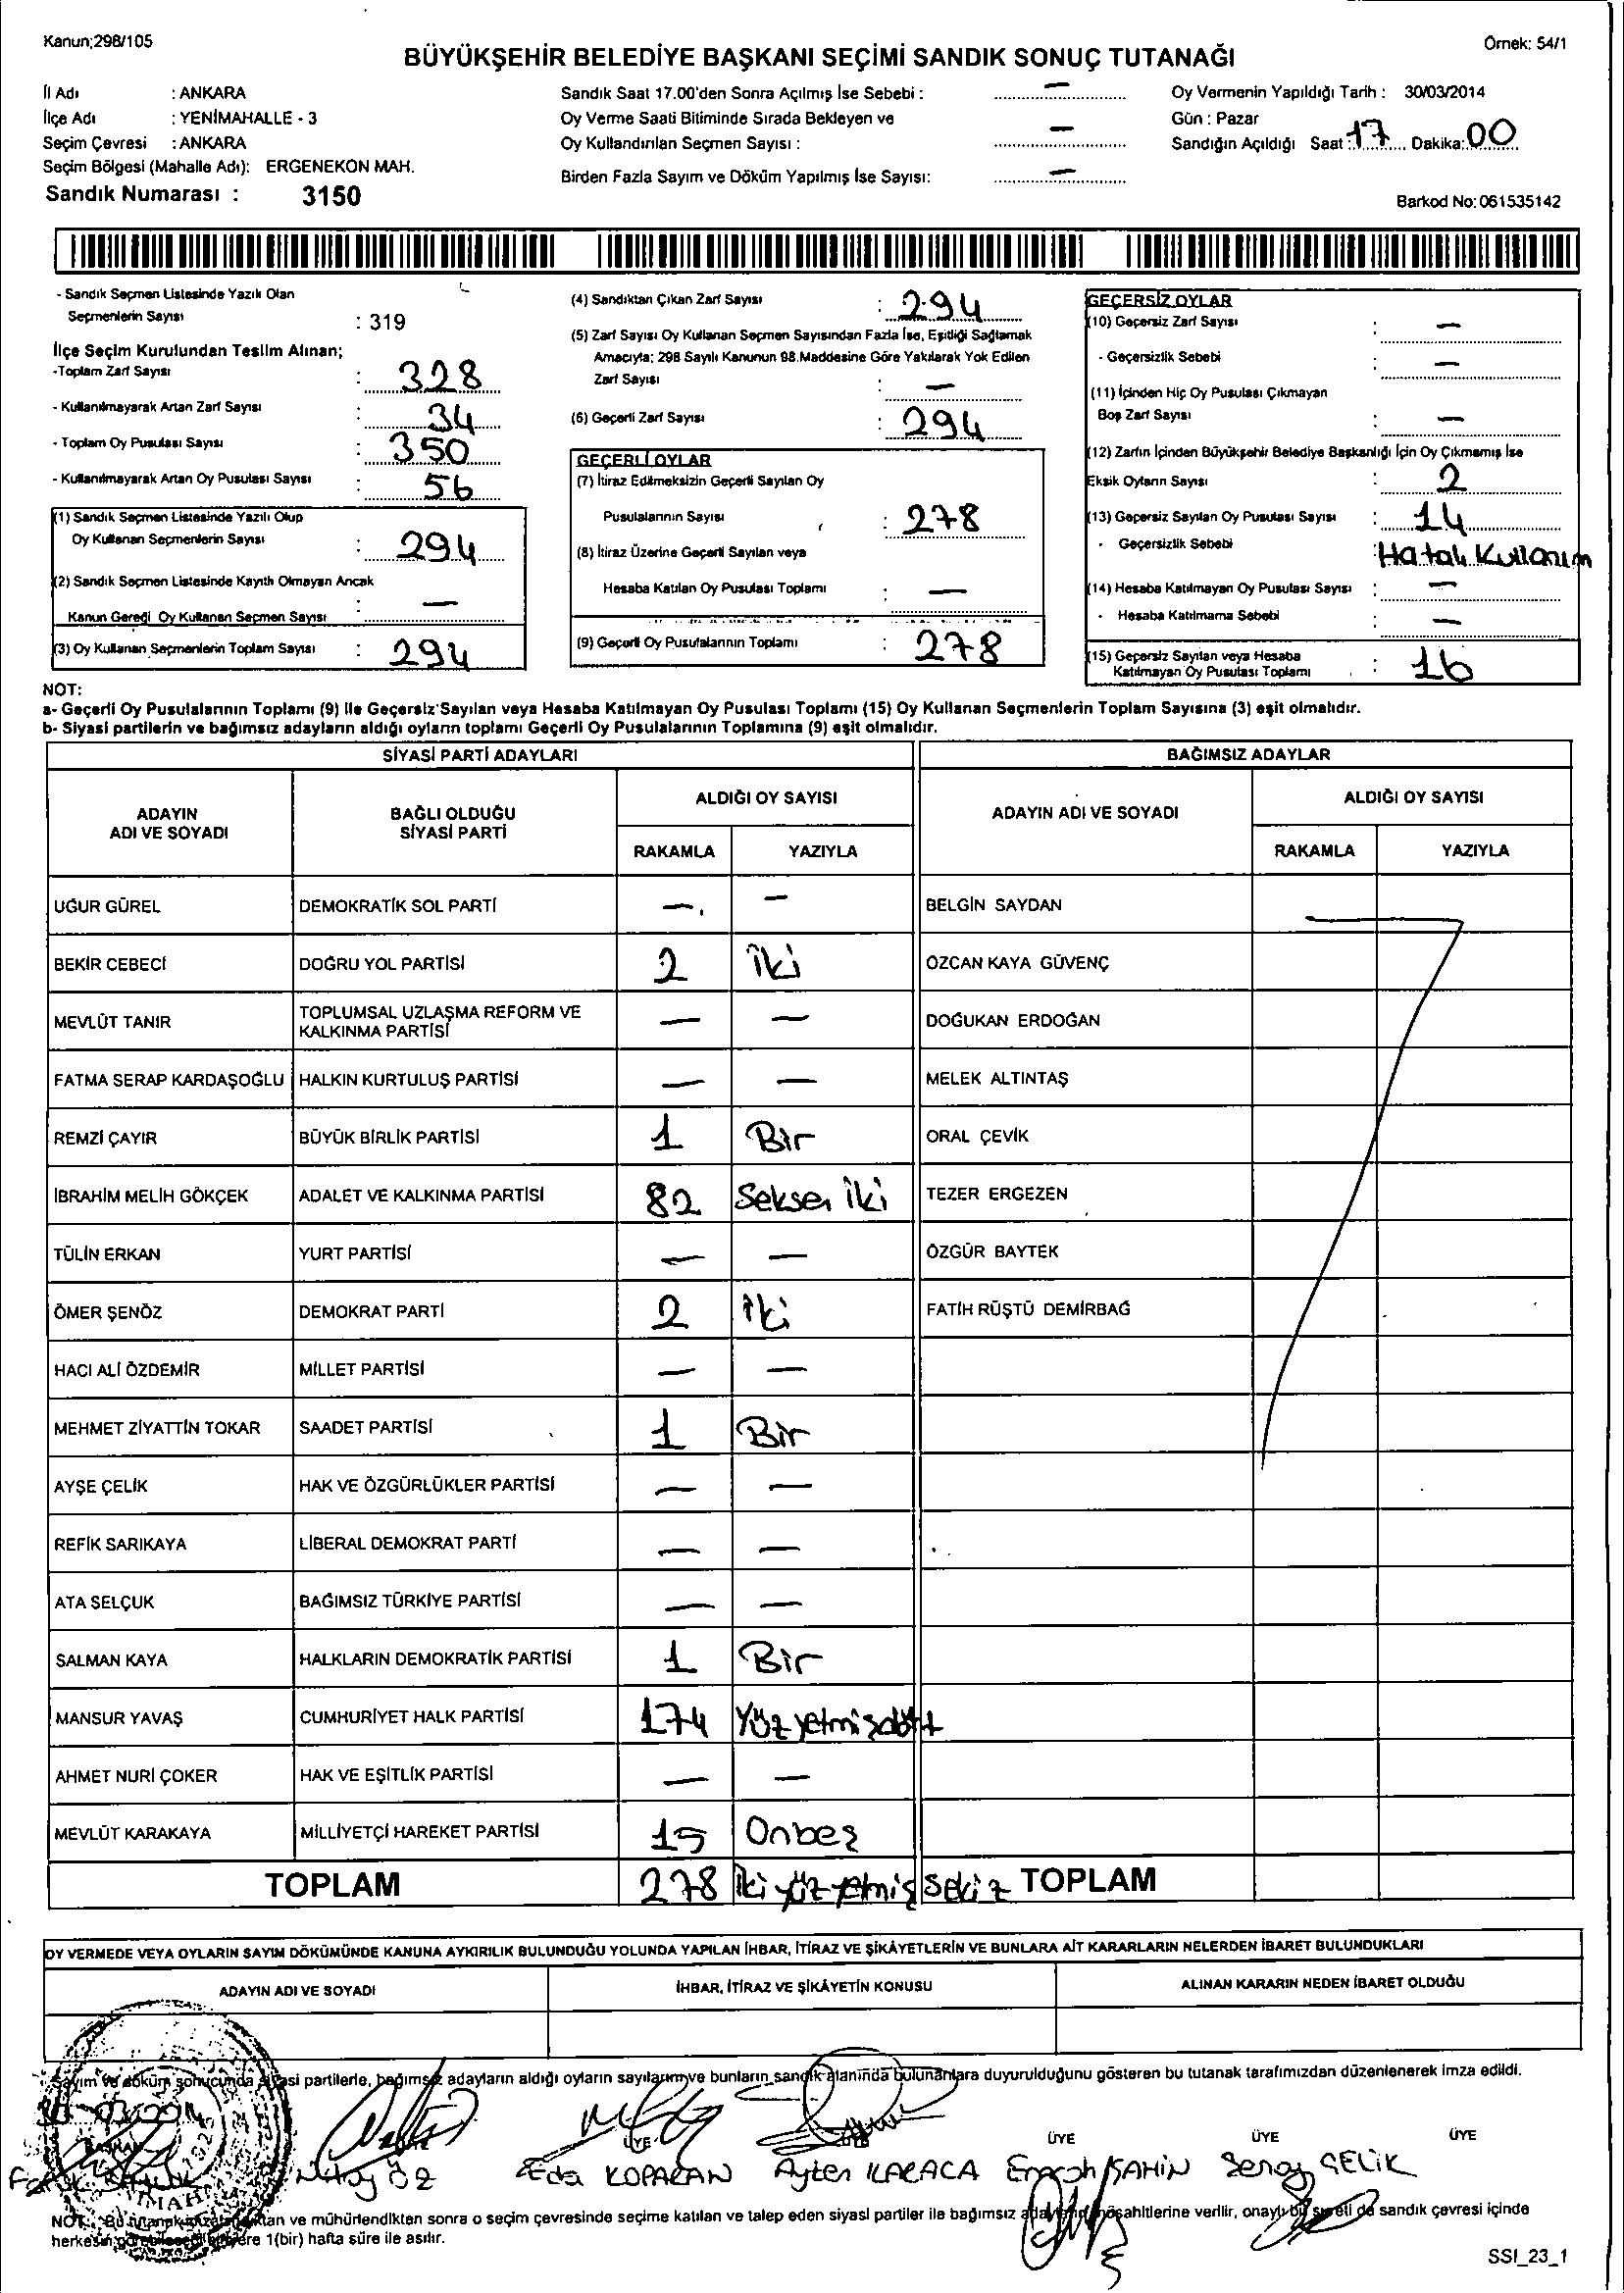 Kanun;298/105
Örnek: 54/1
BÜYÜKŞEHİR BELEDİYE BAŞKANI SEÇİMİ SANDIK SONUÇ TUTANAĞI
İl Adı : ANKARA
İlçe Adı : YENİMAHALLE - 3
Seçim Çevresi : ANKARA
Seçim Bölgesi (Mahalle Adı): ERGENEKON MAH.
Sandık Numarası : 3150
Sandık Saat 17.00'den Sonra Açılmış İse Sebebi : —
Oy Verme Saati Bitiminde Sırada Bekleyen ve
Oy Kullandırılan Seçmen Sayısı : —
Birden Fazla Sayım ve Döküm Yapılmış İse Sayısı: —
Oy Vermenin Yapıldığı Tarih : 30/03/2014
Gün : Pazar
Sandığın Açıldığı Saat : 17 Dakika: 00
Barkod No: 061535142
- Sandık Seçmen Listesinde Yazılı Olan
Seçmenlerin Sayısı : 319
İlçe Seçim Kurulundan Teslim Alınan;
-Toplam Zarf Sayısı : 328
- Kullanılmayarak Artan Zarf Sayısı : 34
- Toplam Oy Pusulası Sayısı : 350
- Kullanılmayarak Artan Oy Pusulası Sayısı : 56
(1) Sandık Seçmen Listesinde Yazılı Olup
Oy Kullanan Seçmenlerin Sayısı : 294
(2) Sandık Seçmen Listesinde Kayıtlı Olmayan Ancak
Kanun Gereği Oy Kullanan Seçmen Sayısı : —
(3) Oy Kullanan Seçmenlerin Toplam Sayısı : 294
(4) Sandıktan Çıkan Zarf Sayısı : 294
(5) Zarf Sayısı Oy Kullanan Seçmen Sayısından Fazla İse, Eşitliği Sağlamak
Amacıyla; 298 Sayılı Kanunun 98.Maddesine Göre Yakılarak Yok Edilen
Zarf Sayısı : —
(6) Geçerli Zarf Sayısı : 294
GEÇERLİ OYLAR
(7) İtiraz Edilmeksizin Geçerli Sayılan Oy
Pusulalarının Sayısı : 278
(8) İtiraz Üzerine Geçerli Sayılan veya
Hesaba Katılan Oy Pusulası Toplamı : —
(9) Geçerli Oy Pusulalarının Toplamı : 278
GEÇERSİZ OYLAR
(10) Geçersiz Zarf Sayısı : —
- Geçersizlik Sebebi : —
(11) İçinden Hiç Oy Pusulası Çıkmayan
Boş Zarf Sayısı : —
(12) Zarfın İçinden Büyükşehir Belediye Başkanlığı İçin Oy Çıkmamış İse
Eksik Oyların Sayısı : 2
(13) Geçersiz Sayılan Oy Pusulası Sayısı : 14
- Geçersizlik Sebebi : Hatalı Kullanım
(14) Hesaba Katılmayan Oy Pusulası Sayısı : —
- Hesaba Katılmama Sebebi : —
(15) Geçersiz Sayılan veya Hesaba
Katılmayan Oy Pusulası Toplamı : 16
NOT:
a- Geçerli Oy Pusulalarının Toplamı (9) İle Geçersiz Sayılan veya Hesaba Katılmayan Oy Pusulası Toplamı (15) Oy Kullanan Seçmenlerin Toplam Sayısına (3) eşit olmalıdır.
b- Siyasi partilerin ve bağımsız adayların aldığı oyların toplamı Geçerli Oy Pusulalarının Toplamına (9) eşit olmalıdır.
SİYASİ PARTİ ADAYLARI
BAĞIMSIZ ADAYLAR
ADAYIN ADI VE SOYADI
BAĞLI OLDUĞU SİYASİ PARTİ
ALDIĞI OY SAYISI
RAKAMLA YAZIYLA
ADAYIN ADI VE SOYADI
ALDIĞI OY SAYISI
RAKAMLA YAZIYLA
UĞUR GÜREL DEMOKRATİK SOL PARTİ — — BELGİN SAYDAN
BEKİR CEBECİ DOĞRU YOL PARTİSİ 2 iki ÖZCAN KAYA GÜVENÇ
MEVLÜT TANIR TOPLUMSAL UZLAŞMA REFORM VE KALKINMA PARTİSİ — — DOĞUKAN ERDOĞAN
FATMA SERAP KARDAŞOĞLU HALKIN KURTULUŞ PARTİSİ — — MELEK ALTINTAŞ
REMZİ ÇAYIR BÜYÜK BİRLİK PARTİSİ 1 Bir ORAL ÇEVİK
İBRAHİM MELİH GÖKÇEK ADALET VE KALKINMA PARTİSİ 82 Seksen iki TEZER ERGEZEN
TÜLİN ERKAN YURT PARTİSİ — — ÖZGÜR BAYTEK
ÖMER ŞENÖZ DEMOKRAT PARTİ 2 iki FATİH RÜŞTÜ DEMİRBAĞ
HACI ALİ ÖZDEMİR MİLLET PARTİSİ — —
MEHMET ZİYATTİN TOKAR SAADET PARTİSİ 1 Bir
AYŞE ÇELİK HAK VE ÖZGÜRLÜKLER PARTİSİ — —
REFİK SARIKAYA LİBERAL DEMOKRAT PARTİ — —
ATA SELÇUK BAĞIMSIZ TÜRKİYE PARTİSİ — —
SALMAN KAYA HALKLARIN DEMOKRATİK PARTİSİ 1 Bir
MANSUR YAVAŞ CUMHURİYET HALK PARTİSİ 174 Yüz yetmişdört
AHMET NURİ ÇOKER HAK VE EŞİTLİK PARTİSİ — —
MEVLÜT KARAKAYA MİLLİYETÇİ HAREKET PARTİSİ 15 Onbeş
TOPLAM 278 iki yüz yetmiş sekiz TOPLAM
OY VERMEDE VEYA OYLARIN SAYIM DÖKÜMÜNDE KANUNA AYKIRILIK BULUNDUĞU YOLUNDA YAPILAN İHBAR, İTİRAZ VE ŞİKÂYETLERİN VE BUNLARA AİT KARARLARIN NELERDEN İBARET BULUNDUKLARI
ADAYIN ADI VE SOYADI İHBAR, İTİRAZ VE ŞİKÂYETİN KONUSU ALINAN KARARIN NEDEN İBARET OLDUĞU
Sayım ve döküm sonucunda siyasi partilerle, bağımsız adayların aldığı oyların sayılarını ve bunların sandık alanında bulunanlara duyurulduğunu gösteren bu tutanak tarafımızdan düzenlenerek imza edildi.
BAŞKAN ÜYE ÜYE ÜYE ÜYE
Eda KOPARAN Ayten KARACA ŞAHİN ÇELİK
NOT: Bu tutanak ve mühürlendikten sonra o seçim çevresinde seçime katılan ve talep eden siyasi partiler ile bağımsız müşahitlerine verilir, onaylı bir sureti de sandık çevresi içinde
herkesin 1(bir) hafta süre ile asılır.
SSI_23_1